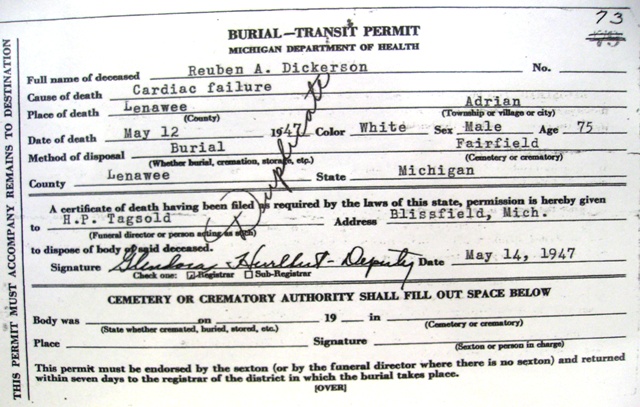 73
73
BURIAL—TRANSIT PERMIT
MICHIGAN DEPARTMENT OF HEALTH
Full name of deceased Reuben A. Dickerson No.
Cause of death Cardiac failure
Place of death Lenawee Adrian
(County) (Township or village or city)
Date of death May 12 1947 Color White Sex Male Age 75
Method of disposal Burial Fairfield
(Whether burial, cremation, storage, etc.) (Cemetery or crematory)
County Lenawee State Michigan
Duplicate
A certificate of death having been filed as required by the laws of this state, permission is hereby given
to H.P. Tagsold Address Blissfield, Mich.
(Funeral director or person acting as such)
to dispose of body of said deceased.
Signature Glendora Hurlbut - Deputy Date May 14, 1947
Check one: Registrar Sub-Registrar
CEMETERY OR CREMATORY AUTHORITY SHALL FILL OUT SPACE BELOW
Body was on 19 in
(State whether cremated, buried, stored, etc.) (Cemetery or crematory)
Place Signature
(Sexton or person in charge)
This permit must be endorsed by the sexton (or by the funeral director where there is no sexton) and returned
within seven days to the registrar of the district in which the burial takes place.
[OVER]
THIS PERMIT MUST ACCOMPANY REMAINS TO DESTINATION